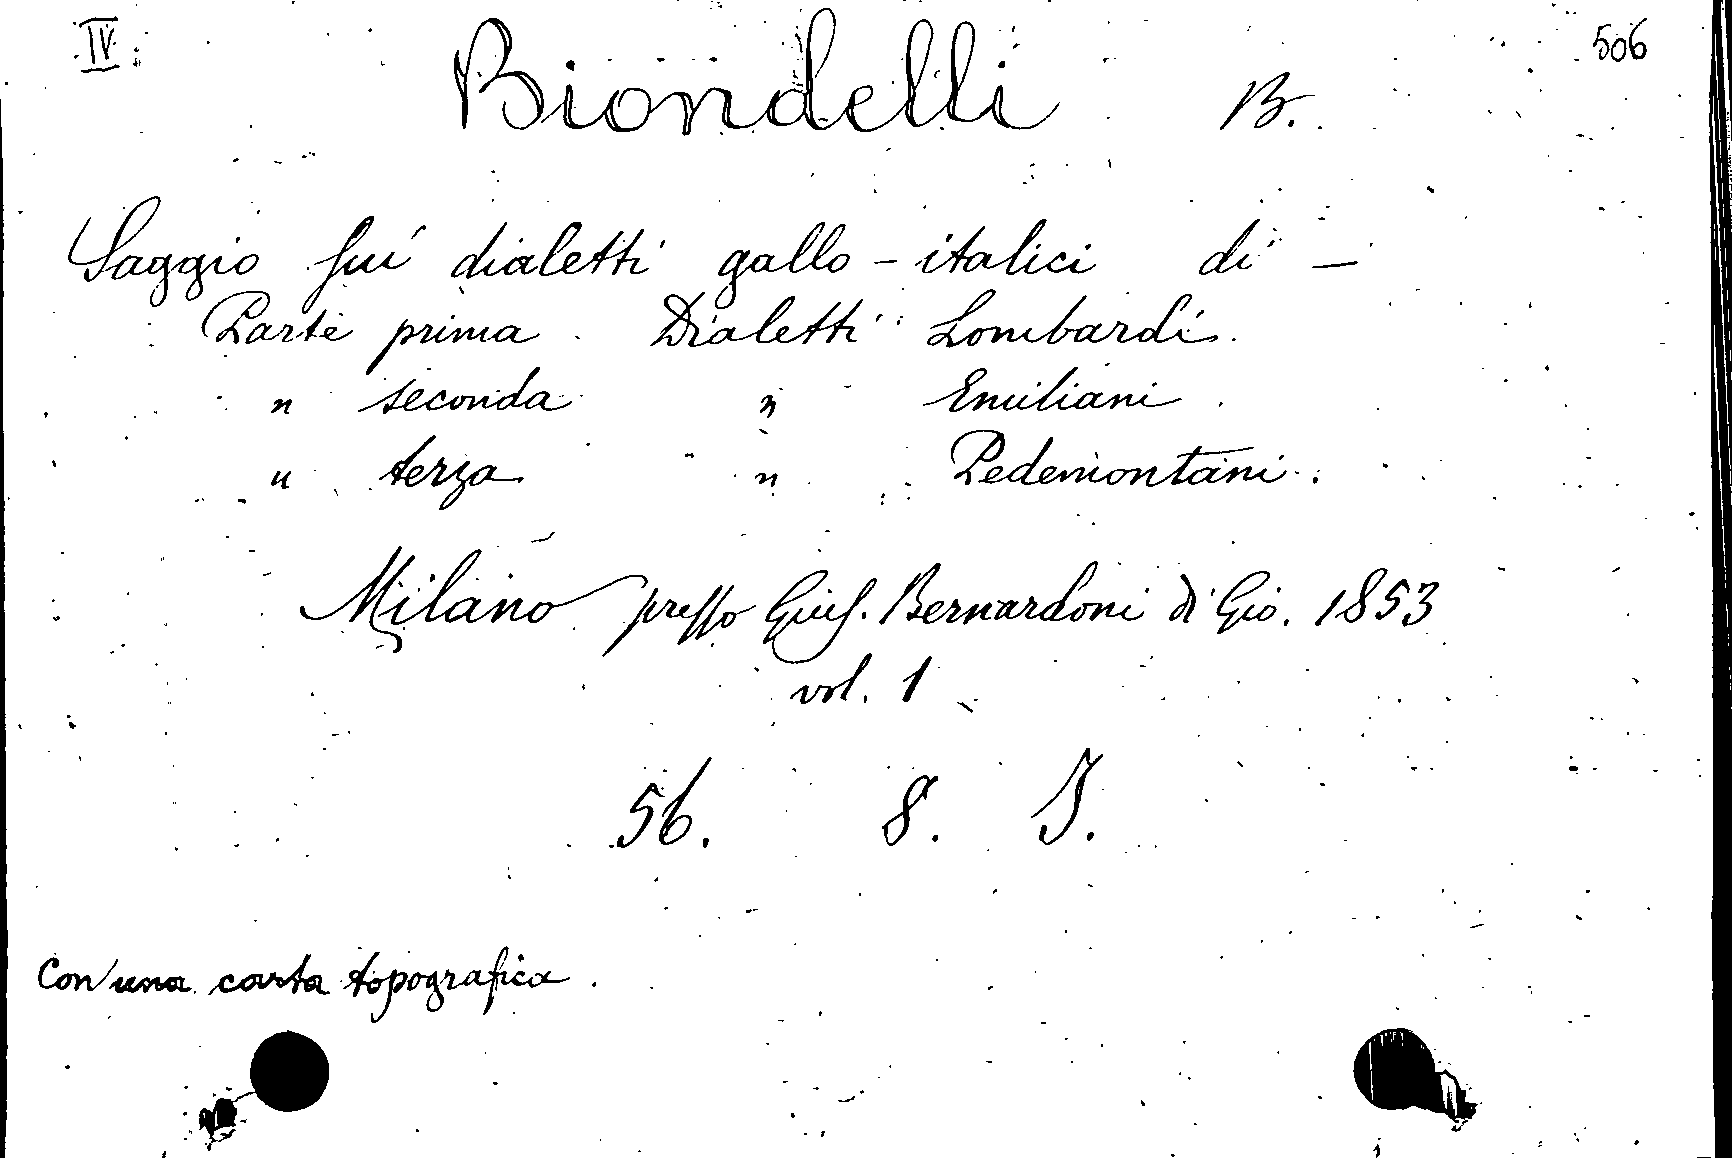 IV
506
Biondelli B.
Saggio sui dialetti gallo-italici di —
Parte prima Dialetti Lombardi.
" seconda " Emiliani.
" terza " Pedemontani.
Milano presso Gius. Bernardoni di Gio. 1853
vol. 1
56. 8. J.
Con una carta topografica.